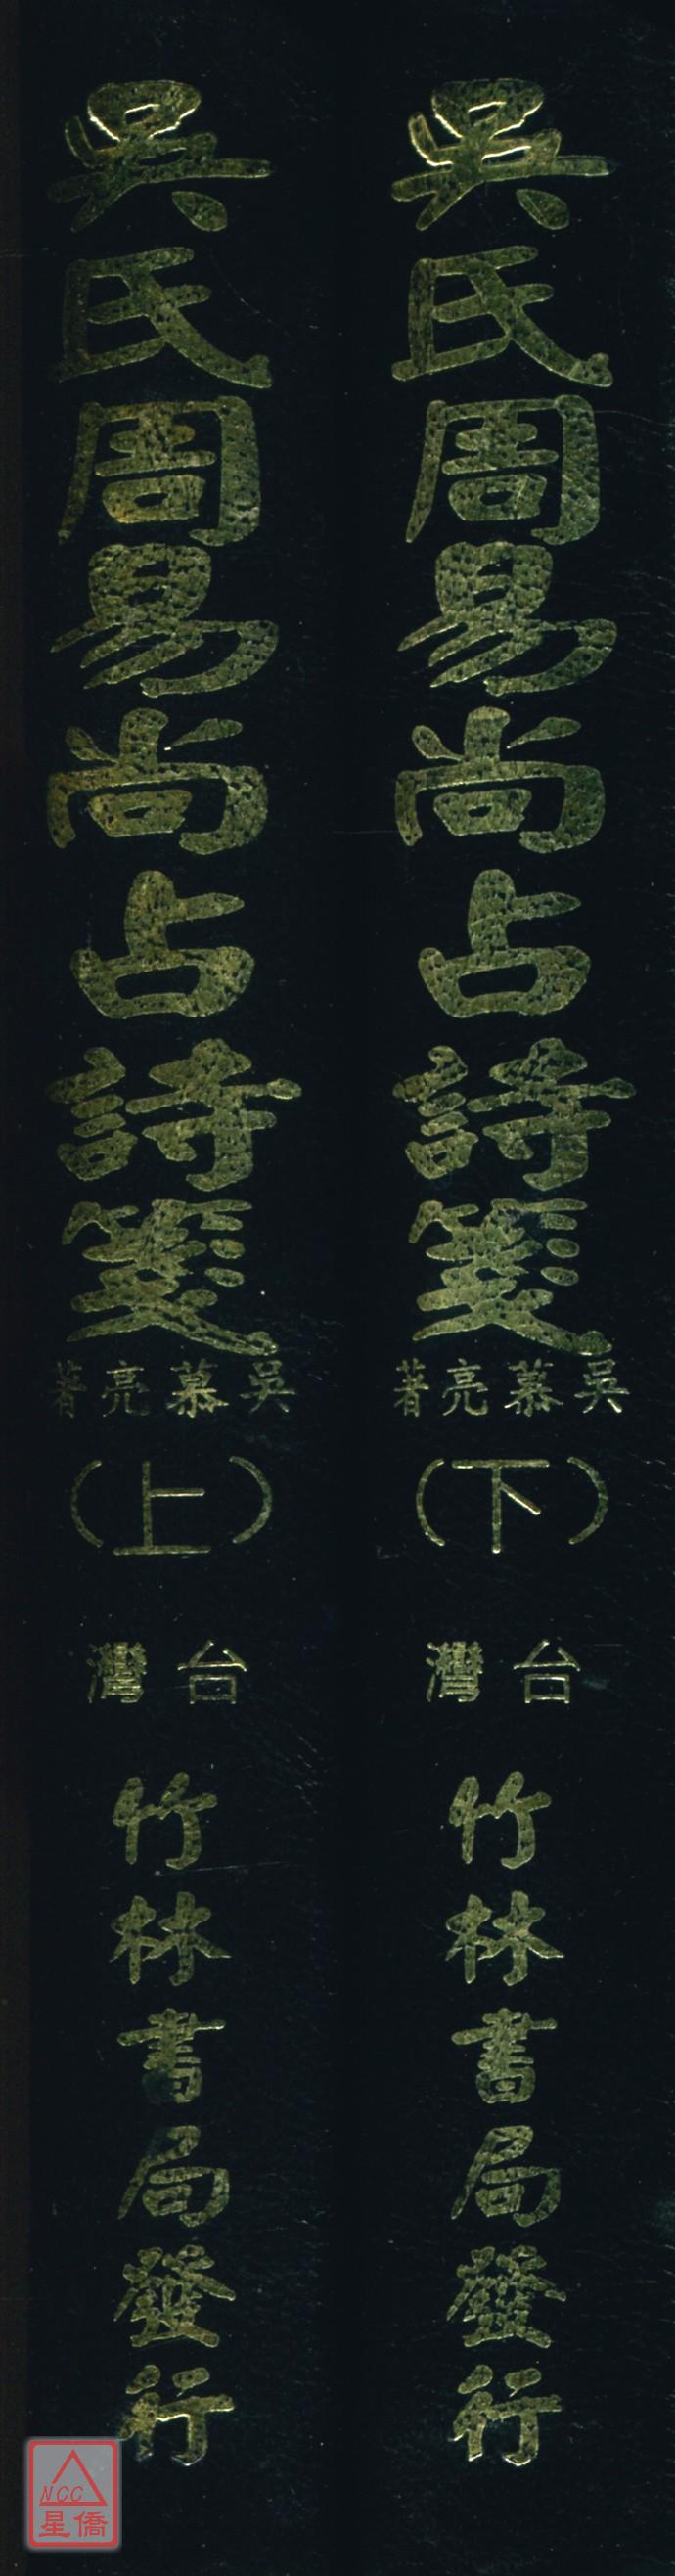 吳氏周易尚占詩箋
吳慕亮著
（上）
台灣
竹林書局發行
吳氏周易尚占詩箋
吳慕亮著
（下）
台灣
竹林書局發行
NCC
星僑